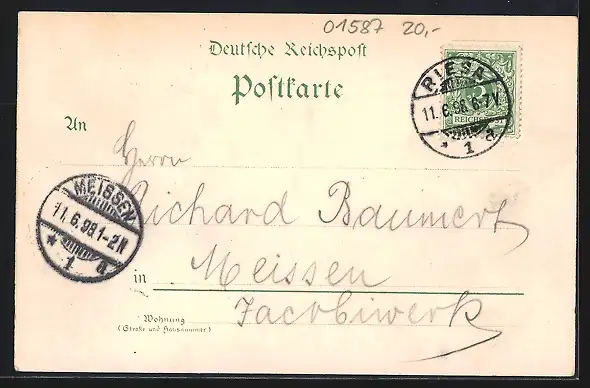 01587 20,-
Deutsche Reichspost
Postkarte
RIESA
11.6.98.6-7V
* 1 a
5
REICHS
An
Herrn
Richard Baumert
MEISSEN
11.6.98.1-2N
* 1 a
in Meissen
Jacobiwerk
Wohnung
(Straße und Hausnummer)